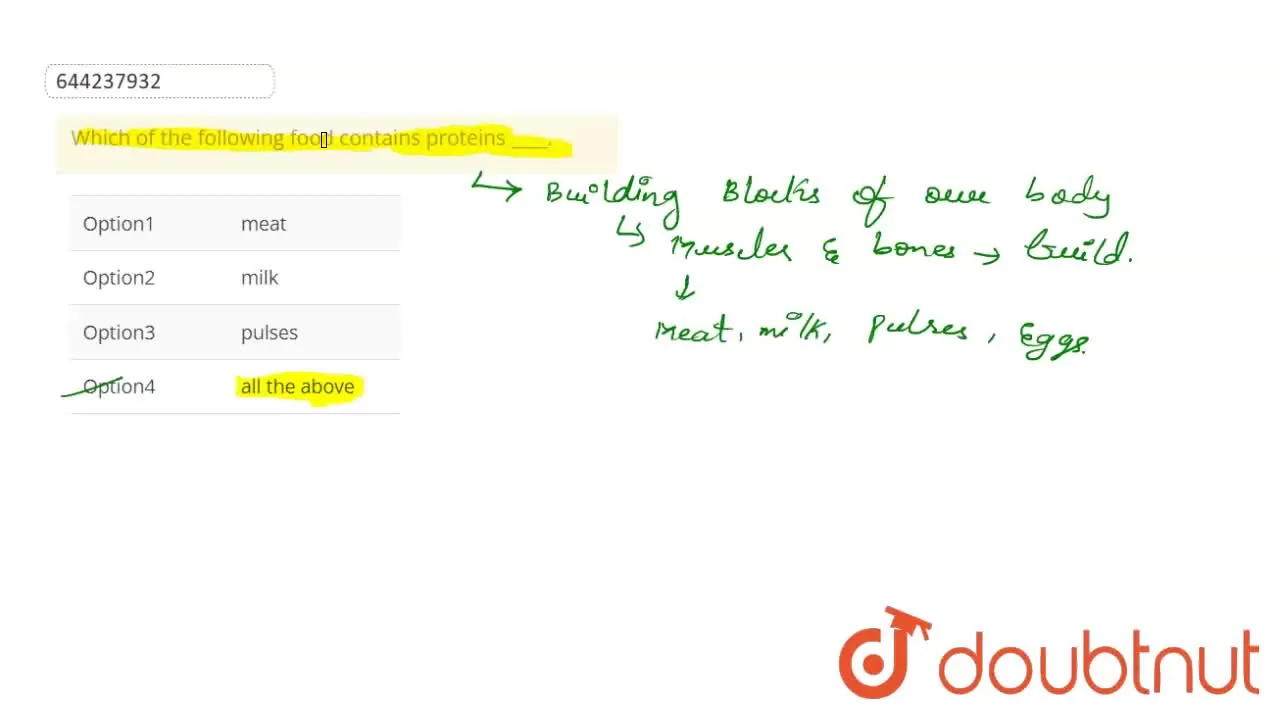 644237932
Which of the following food contains proteins ____.
Building Blocks of our body
Option1 meat
Muscles & bones → build.
Option2 milk
Option3 pulses
Meat, milk, Pulses, Eggs.
Option4 all the above
doubtnut